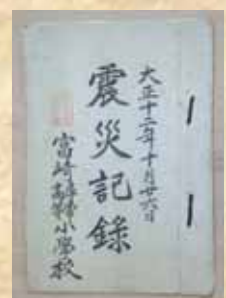 大正十二年十月廿六日
震災記録
富崎尋常高等小學校